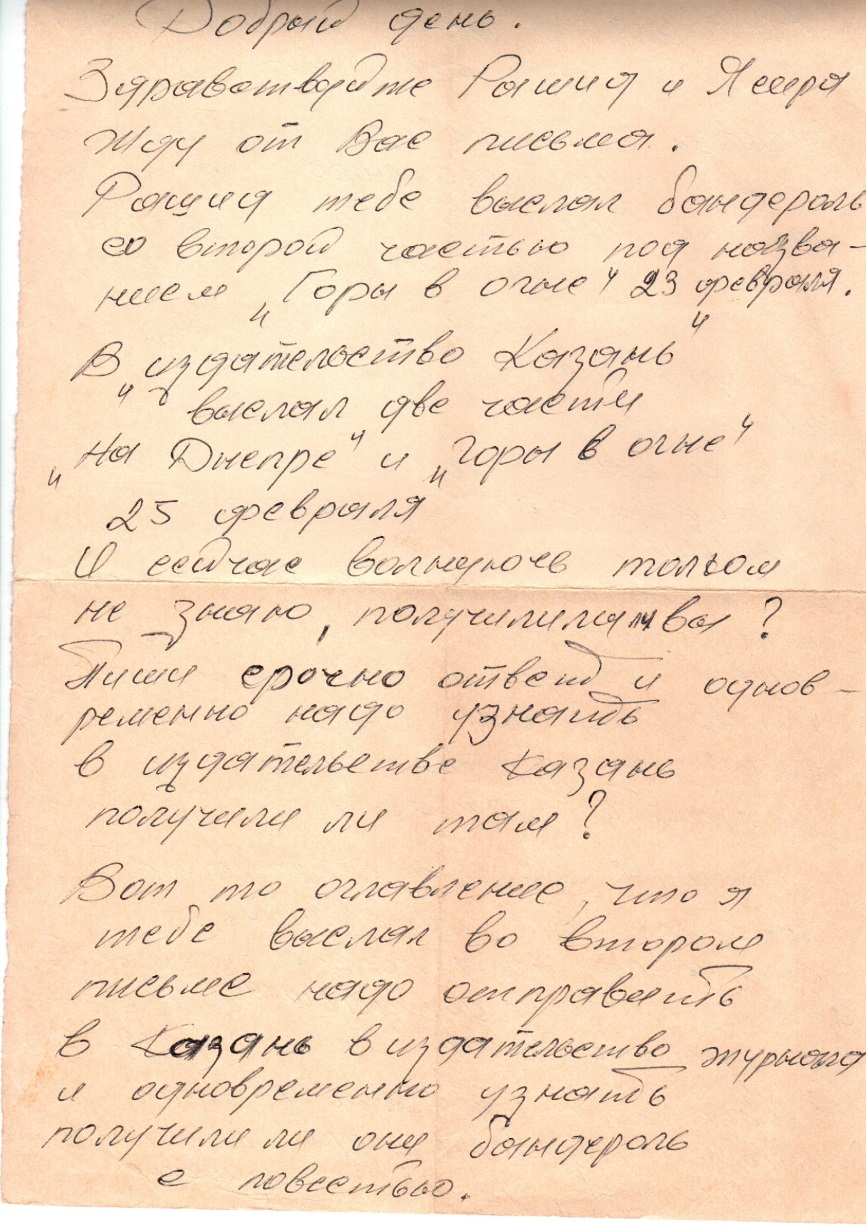 Добрый день.
Здравствуйте Рашид и Ясира
Жду от Вас письма.
Рашид тебе выслал бандероль
со второй частью под назва-
нием „Горы в огне" 23 февраля.
В „издательство Казань"
выслал две части
„На Днепре" и „Горы в огне"
25 февраля
И сейчас волнуюсь толком
не знаю, получили ли вы?
Пиши срочно ответ и однов-
ременно надо узнать
в издательстве Казань
получили ли там?
Вот то оглавление, что я
тебе выслал во втором
письме надо отправить
в Казань в издательство журнала
и одновременно узнать
получили ли они бандероль
с повестью.